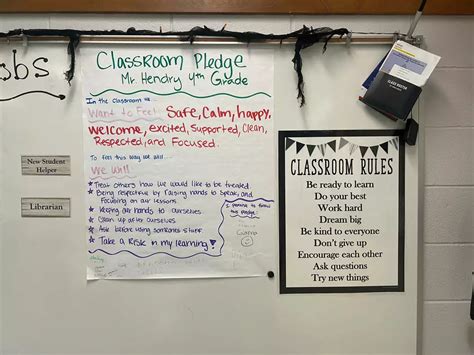 obs
Classroom Pledge
Mr. Hendry 4th Grade
In the Classroom we
Want to Feel: Safe, Calm, happy,
welcome, excited, Supported, Clean,
Respected, and Focused.
To feel this way we will...
We Will
★ Treat others how we would like to be treated.
★ Being respectful by raising hands to speak and
focusing on our lessons
★ Keeping our hands to ourselves.
★ Clean up after ourselves
★ Ask before using someone's stuff
★ Take a Risk in my learning
I promise to follow this
pledge.
New Student
Helper
Librarian
CLASSROOM RULES
Be ready to learn
Do your best
Work hard
Dream big
Be kind to everyone
Don't give up
Encourage each other
Ask questions
Try new things